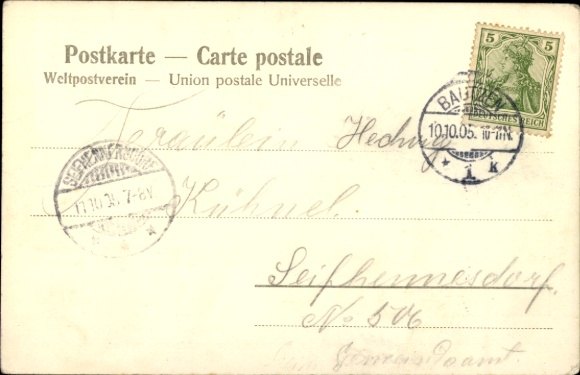 Postkarte — Carte postale
Weltpostverein — Union postale Universelle
5 5
DEUTSCHES REICH
BAUTZEN
10.10.05. 6-7N.
* 1 k
Fräulein Hedwig
SEIFHENNERSDORF
11.10.05. 7-8V.
Kühnel.
Seifhennesdorf.
No 506
Gemeindeamt.